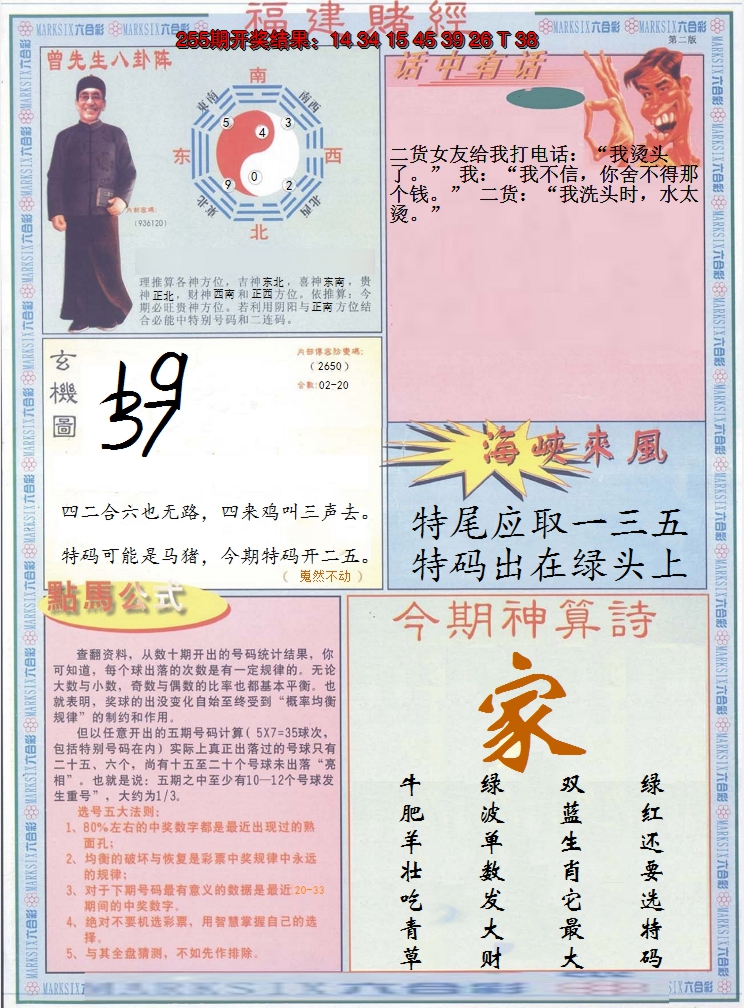 福建賭經
255期开奖结果：14 34 15 45 39 26 T 38
第二版
MARKSIX六合彩
曾先生八卦阵
南
东南
南西
5
4
3
东
西
9
0
2
东北
北西
北
内部密碼:
(936120)
理推算各神方位，吉神东北，喜神东南，贵
神正北，财神西南和正西方位。依推算：今
期必旺贵神方位。若利用阴阳与正南方位结
合必能中特别号码和二连码。
话中有话
二货女友给我打电话：“我烫头
了。” 我：“我不信，你舍不得那
个钱。” 二货：“我洗头时，水太
烫。”
玄機圖
内部傳密防雙碼:
(2650)
合數:02-20
四二合六也无路，四来鸡叫三声去。
特码可能是马猪，今期特码开二五。
（ 嵬然不动 ）
海峽來風
特尾应取一三五
特码出在绿头上
點馬公式
查翻资料，从数十期开出的号码统计结果，你
可知道，每个球出落的次数是有一定规律的。无论
大数与小数，奇数与偶数的比率也都基本平衡。也
就表明，奖球的出没变化自始至终受到“概率均衡
规律”的制约和作用。
但以任意开出的五期号码计算( 5X7=35球次，
包括特别号码在内) 实际上真正出落过的号球只有
二十五、六个，尚有十五至二十个号球未出落“亮
相”。也就是说：五期之中至少有10—12个号球发
生重号”，大约为1/3。
选号五大法则：
1、80%左右的中奖数字都是最近出现过的熟
面孔；
2、均衡的破坏与恢复是彩票中奖规律中永远
的规律；
3、对于下期号码最有意义的数据是最近20-33
期间的中奖数字。
4、绝对不要机选彩票，用智慧掌握自己的选
择。
5、与其全盘猜测，不如先作排除。
今期神算詩
家
牛肥羊壮吃青草
绿波单数发大财
双蓝生肖它最大
绿红还要选特码